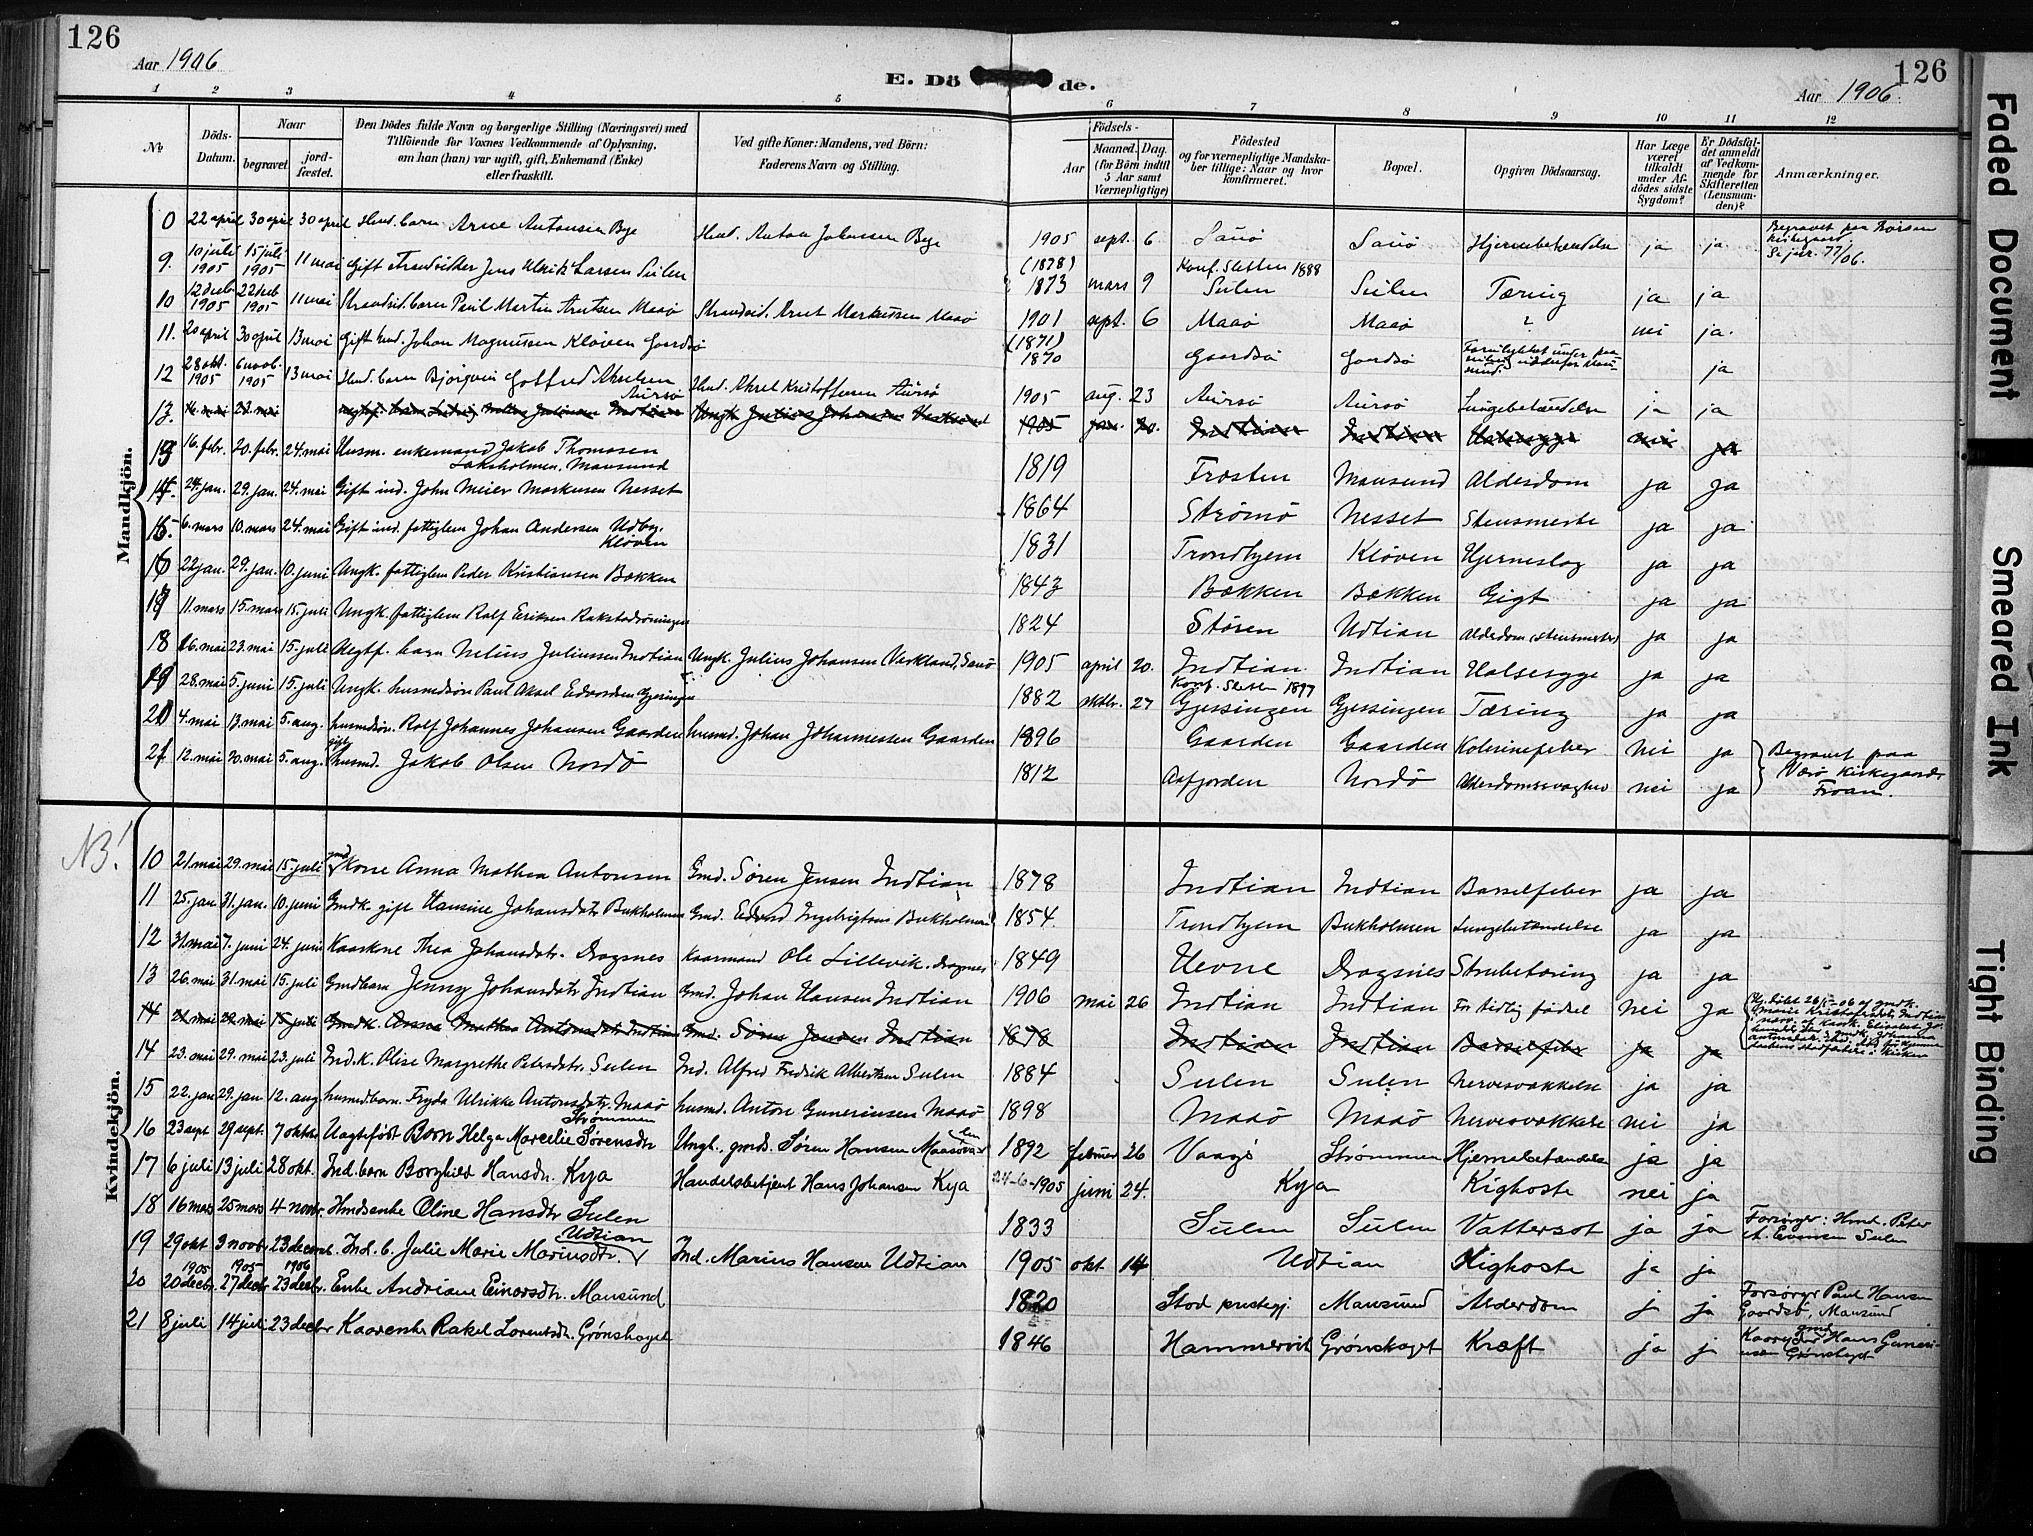 126
Aar 1906
E. Dö de.
Aar 1906.
126
1 2 3 4 5 6 7 8 9 10 11 12
No. Döds-Datum. Naar begravet jordfæstet. Den Dödes fulde Navn og borgerlige Stilling (Næringsvei) med Tilföiende for Voxnes Vedkommende af Oplysning, om han (hun) var ugift, gift, Enkemand (Enke) eller fraskilt. Ved gifte Koner: Mandens, ved Börn: Faderens Navn og Stilling. Födsels- Aar Maaned. Dag. (for Börn indtil 5 Aar samt Værnepligtige) Födested og for værnepligtige Mandskaber tillige: Naar og hvor konfirmeret. Bopæl. Opgiven Dödsaarsag. Har Læge været tilkaldt under Afdödes sidste Sygdom? Er Dödsfaldet anmeldt af Vedkommende for Skifteretten (Lensmanden)? Anmærkninger.
Mandkjön.
0 22 april 30 april 30 april Husd. barn Arne Antonsen Bye Husd. Anton Johansen Bye 1905 sept. 6 Sauø Sauø Hjernebetændelse ja ja Begravet paa
9. 10 juli 1905 15 juli 1905 11 mai Gift Strandsidder Jens Ulrik Larsen Sulen (1878) 1873 mars 9 Konf. Sletten 1888 Sulen Sulen Tæring ja ja
10 12 deeb. 1905 22 deeb 1905 11 mai Strandsid. barn Paul Martin Arntsen Maaø Strandsid. Arnt Markussen Maaø 1901 sept. 6 Maaø Maaø ? nei ja.
11. 20 april 30 april 13 mai Gift husd. Johan Magnussen Kløven Gaardsø (1871) 1870 Gaardsø Gaardsø Forulykket under ja
12 28 okt. 1905 6 novb. 1905 13 mai Husd. barn Bjørgvin Gotfred Akselsen Aursø Husd. Aksel Kristoffersen Aursø 1905 aug. 23 Aursø Aursø Lungebetændelse ja ja
13. 16. mai 23. mai Indtian Ungk. Julius Johansen 1905 20. Indtian Indtian Halsesyge nei ja
13 16. febr. 20. febr. 24. mai Husm. enkemand Jakob Thomasen Laksholmen, Mausund 1819 Frosten Mausund Alderdom ja ja
14. 24. jan. 29. jan. 24. mai Gift ind. John Meier Markusen Nesset 1864 Strømø Nesset Stensmerte ja ja
15. 6. mars 10. mars 24. mai Gift ind. fattiglem Johan Andersen Udby, Kløven 1831 Trondhjem Kløven Hjerneslag ja ja
16 22 jan. 29. jan. 10. juni Ungk. fattiglem Peder Kristiansen Bakken 1843 Bakken Bakken Gigt ja ja
17 11. mars 15. mars 15. juli Ungk. fattiglem Rolf Eriksen 1824 Støren Udtian Alderdom (stensmerter) ja ja
18 16. mai 23. mai 15. juli Uegtf. barn Nelius Juliussen Indtian Ungk. Julius Johansen (Vaskland), Sauø 1905 april 20. Indtian Indtian Halsesyge ja ja
19 28. mai 5. juni 15. juli Ungk. husmdsøn Paul Aksel Edvardsen Gjessingen 1882 oktbr. 27 Konf. Sletten 1897 Gjessingen Gjessingen Tæring ja ja
20 4. mai 13. mai 5. aug. husmdsøn. Rolf Johannes Johansen Gaarden husmd. Johan Johannessen Gaarden 1896 Gaarden Gaarden Kolerinefeber nei ja
21 12. mai 20. mai 5. aug. gift husmd. Jakob Olsen Nordø 1812 Aafjorden Nordø Alderdomssvaghed nei ja Begravet paa Værø Kirkegaard, Froan.
Kvindekjön.
NB!
10 21. mai 29. mai 15. juli gmd Kone Anna Mathea Antonsen Gmd. Søren Jensen Indtian 1878 Indtian Indtian Barselfeber ja ja
11 25. jan. 31. jan. 10. juni Gmdk. gift Hansine Johansdatr Bukholmen Gmd. Edvard Ingebrigtsen Bukholmen 1854. Trondhjem Bukholmen Lungebetændelse ja ja
12 31. mai 7. juni 24. juni Kaarkone Thea Johansdtr. Dragsnes Kaarmand Ole Lillevik. Dragsnes 1849 Hevne Dragsnes Strubetæring ja ja
13 26. mai 31. mai 15. juli Gmdbarn Jenny Johansdatr Indtian Gmd. Johan Hansen Indtian 1906 mai 26 Indtian Indtian For tidlig fødsel nei ja
14 21. mai 29. mai 15. juli Gmdk. Anna Mathea Antonsdatr Indtian Gmd. Søren Jensen Indtian 1878 Indtian Indtian Barselfeber ja ja
14 23. mai 29. mai 23. juli Ind. k. Olise Margrethe Petersdatr. Sulen Ind. Alfred Fredrik Albertsen Sulen 1884 Sulen Sulen Nervesvækkelse ja ja
15 22. jan 29. jan 12. aug husmd. barn. Fryda Ulrikke Antonsdatr. Maaø husmd. Anton Guneriusen Maaø 1898 Maaø Maaø Nervesvækkelse nei ja
16 23 sept 29 sept. 7 oktbr Uægtefødt Barn Helga Marcelie Sørensdtr Strømmen Ungk., gmds. Søren Hansen 1892 februar 26 Vaagø Strømmen Hjernebetændelse ja ja
17 6 juli 13 juli 28 okt. Ind. barn Borghild Hansdtr. Kya Handelsbetjent Hans Johansen Kya 24-6-1905 juni 24. Kya Kighoste nei ja
18 16 mars 25 mars 4 novbr. Husdsenke Oline Hansdtr Sulen 1833 Sulen Sulen Vattersot ja ja Forsørger: Husd. Peter A. Evensen Sulen
19 29 okt 1905 3 novb. 1905 23 decemb. 1906 Ind. b. Julie Marie Mariusdtr. Udtian Ind. Marius Hansen Udtian 1905 okt 14 Udtian Kighoste ja ja
20 20 decbr. 27 decbr. 23 decbr. Enke Andriane Einarsdtr. Mausund 1820 Stod prestegj. Mausund Alderdom ja ja Forsørger Paul Hansen Gaardsø, Mausund
21 8 juli 14 juli 23 decbr Kaarenke Rakel Lorentsdtr. Grønskaget 1846 Hammervik Grønskaget Kræft ja ja Kaaryder gmd Hans Guneriussen Grønskaget
Faded Document
Smeared Ink
Tight Binding